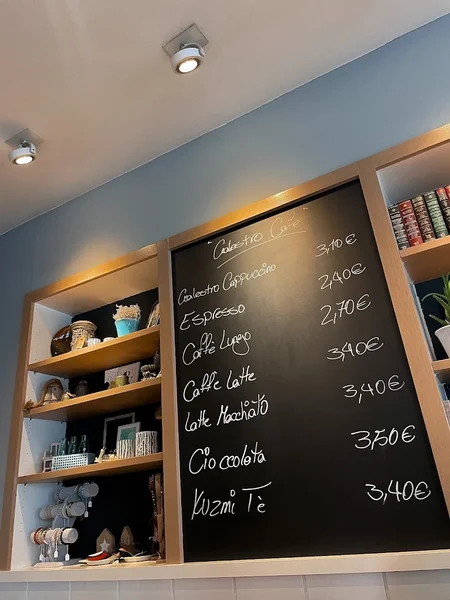 "Galeastro Café"
Galeastro Cappuccino 3,10€
Espresso 2,40€
Caffè Lungo 2,70€
Caffè Latte 3,40€
Latte Macchiato 3,40€
Cioccolata 3,50€
Kuzmi Tè 3,40€